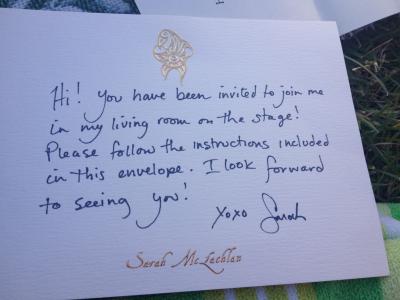 Hi! You have been invited to join me
in my living room on the stage!
Please follow the instructions included
in this envelope. I look forward
to seeing you!
xoxo Sarah
Sarah McLachlan